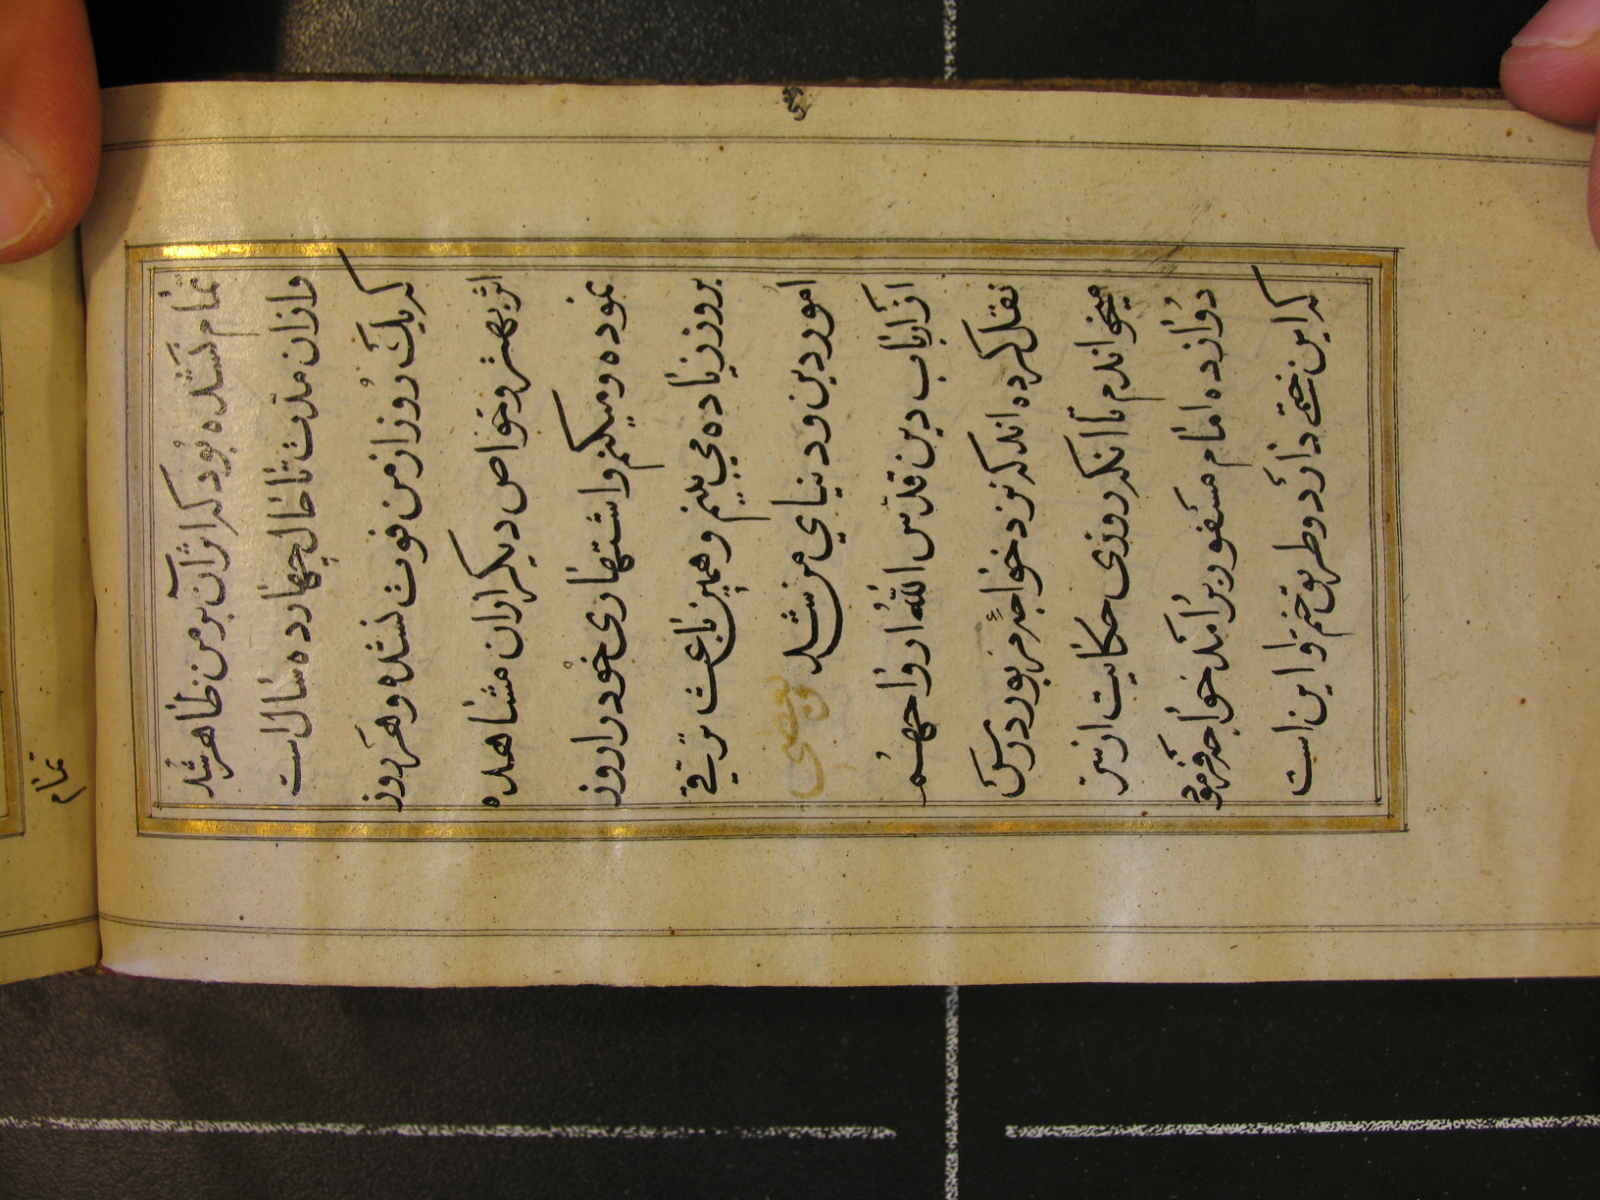 تمام نشده بود که اثر آن بر من ظاهر شد
و از آن مدت تا حال چهارده سال است
که یک روز از من فوت نشده و هر روز
اثر بهتر و خواص دیگر از ان مشاهده
نموده و میکنم و اشتهاری خود را روز
بروز زیاده می بینم و همین باعث ترقی
امور دین و دنیای من شد و بعضی
از اکابر دین قدس الله ارواحهم
نقل کرده اند که نزد خواجه مزبور درس
میخواندم تا انکه روزی حکایت از سر
دوازده امام مذکور برامد خواجه فرمود
که این ختمی دارد و طریق ختم او این است
تمام